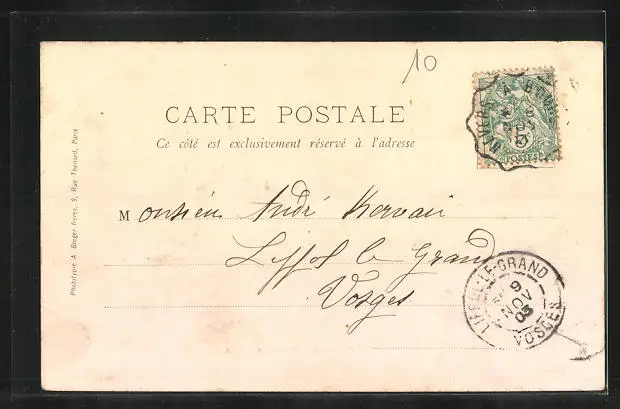 10
CARTE POSTALE
Ce côté est exclusivement réservé à l'adresse
Monsieur André
Liffol le Grand
Vosges
POSTES
LIFFOL-LE-GRAND
9
NOV
03
VOSGES
Phototypie A Breger frères, 9, Rue Thénard, Paris